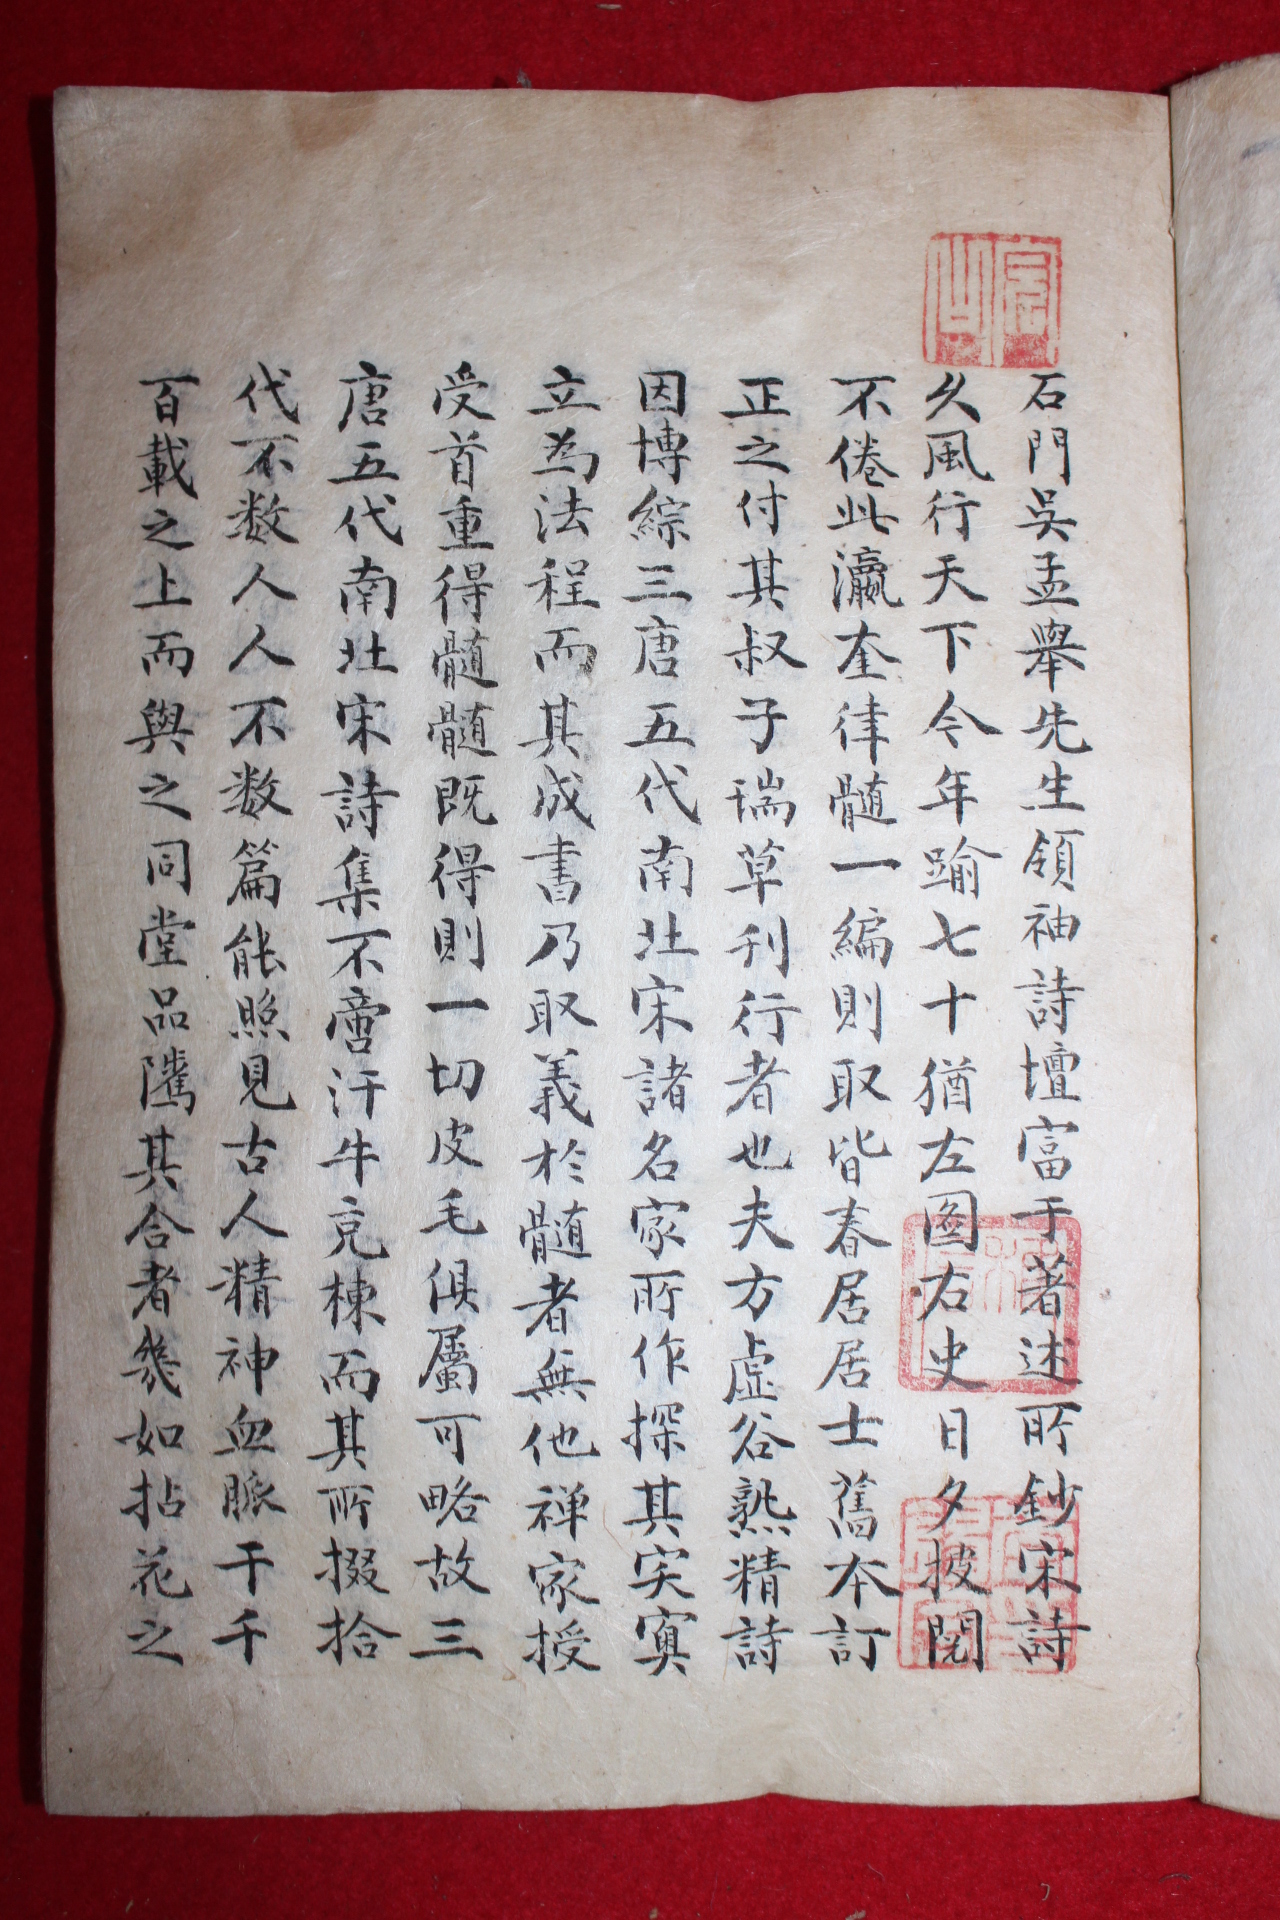 石門吳孟舉先生領袖詩壇富于著述所鈔宋詩
久風行天下今年踰七十猶左圖右史日夕披閱
不倦此瀛奎律髓一編則取皆春居居士舊本訂
正之付其叔子瑞草刊行者也夫方虛谷熟精詩
因博綜三唐五代南北宋諸名家所作探其实寞
立為法程而其成書乃取義於髓者無他禅家授
受首重得髓髓既得則一切皮毛俱屬可略故三
唐五代南北宋詩集不啻汗牛充棟而其所掇拾
代不数人人不数篇能照見古人精神血脈于千
百載之上而與之同堂品隲其合者幾如拈花之